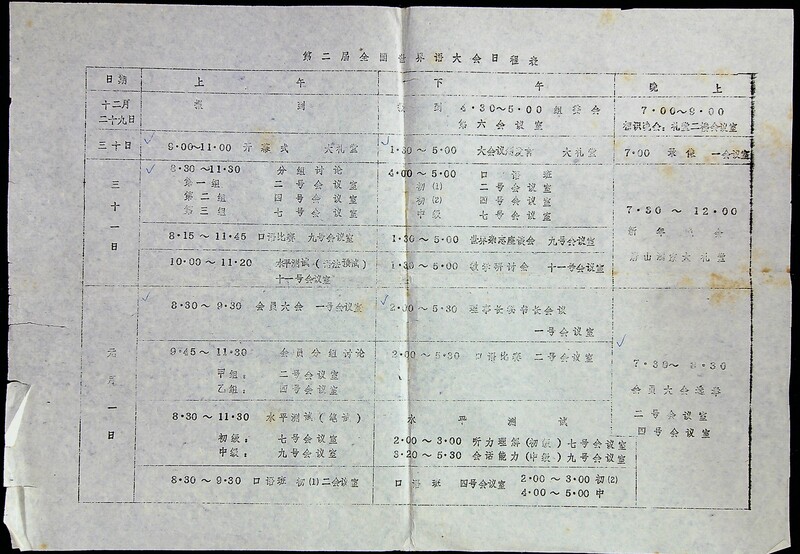 第二届全国世界语大会日程表
日期 上 午 下 午 晚 上
十二月
二十九日
报 到 报 到 4·30～5·00 组委会
第六会议室
7·00～9·00
相识晚会：礼堂二楼会议室
三十日 9·00～11·00 开幕式 大礼堂 1·30～5·00 大会议 发言 大礼堂 7·00 录像 一会议室
三十一日
8·30～11·30 分组讨论
第一组 二号会议室
第二组 四号会议室
第三组 七号会议室
4·00～5·00 口语班
初(1) 二号会议室
初(2) 四号会议室
中级 七号会议室
8·15～11·45 口语比赛 九号会议室 1·30～5·00 世界 座谈会 九号会议室
10·00～11·20 水平测试（ ）
十一号会议室
1·30～5·00 教学研讨会 十一号会议室
7·30～12·00
新年晚会
大礼堂
元月一日
8·30～9·30 会员大会 一号会议室 2·00～5·30 理事长秘书长会议
一号会议室
9·45～11·30 会员分组讨论
甲组： 二号会议室
乙组： 四号会议室
2·00～5·30 口语比赛 二号会议室
8·30～11·30 水平测试（笔试）
初级： 七号会议室
中级： 九号会议室
水 平 测 试
2·00～3·00 听力理解（初级）七号会议室
3·20～5·30 会话能力（中级）九号会议室
8·30～9·30 口语班 初(1)二会议室 口语班 四号会议室 2·00～3·00 初(2)
4·00～5·00 中
7·30～ ·30
会员大会选举
二号会议室
四号会议室